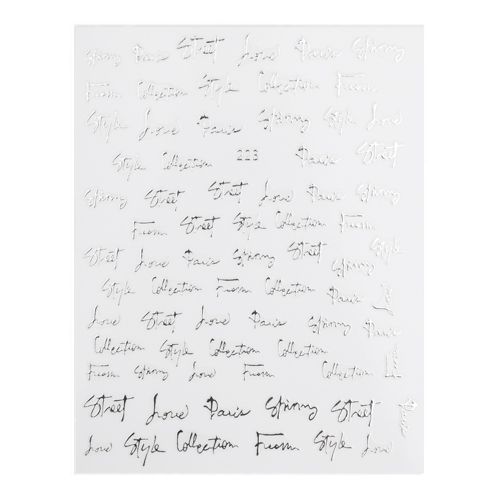 Spring Paris Street Love Paris Spring
From Collection Style Collection From
Style Love Paris Spring Style Love
Style Collection 223 Paris Street
Spring Street Street Love Paris Spring
From Street Style Collection From
Street Love Paris Spring Street Spring Style
Style Collection From Collection Paris Love
Love Street Love Paris Spring Paris
Collection Style Collection Collection
From Spring Love From Collection Love
Street Love Paris Spring Street Paris
Love Style Collection From Style Love